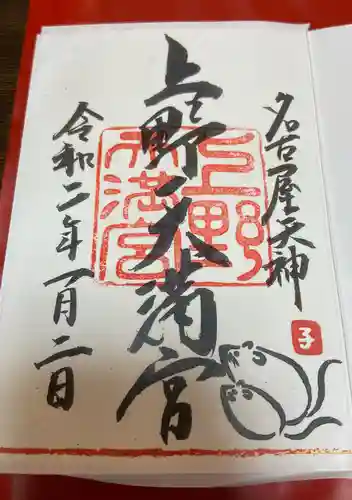 名古屋天神
上野天満宮
令和二年一月二日
上野天満宮
子